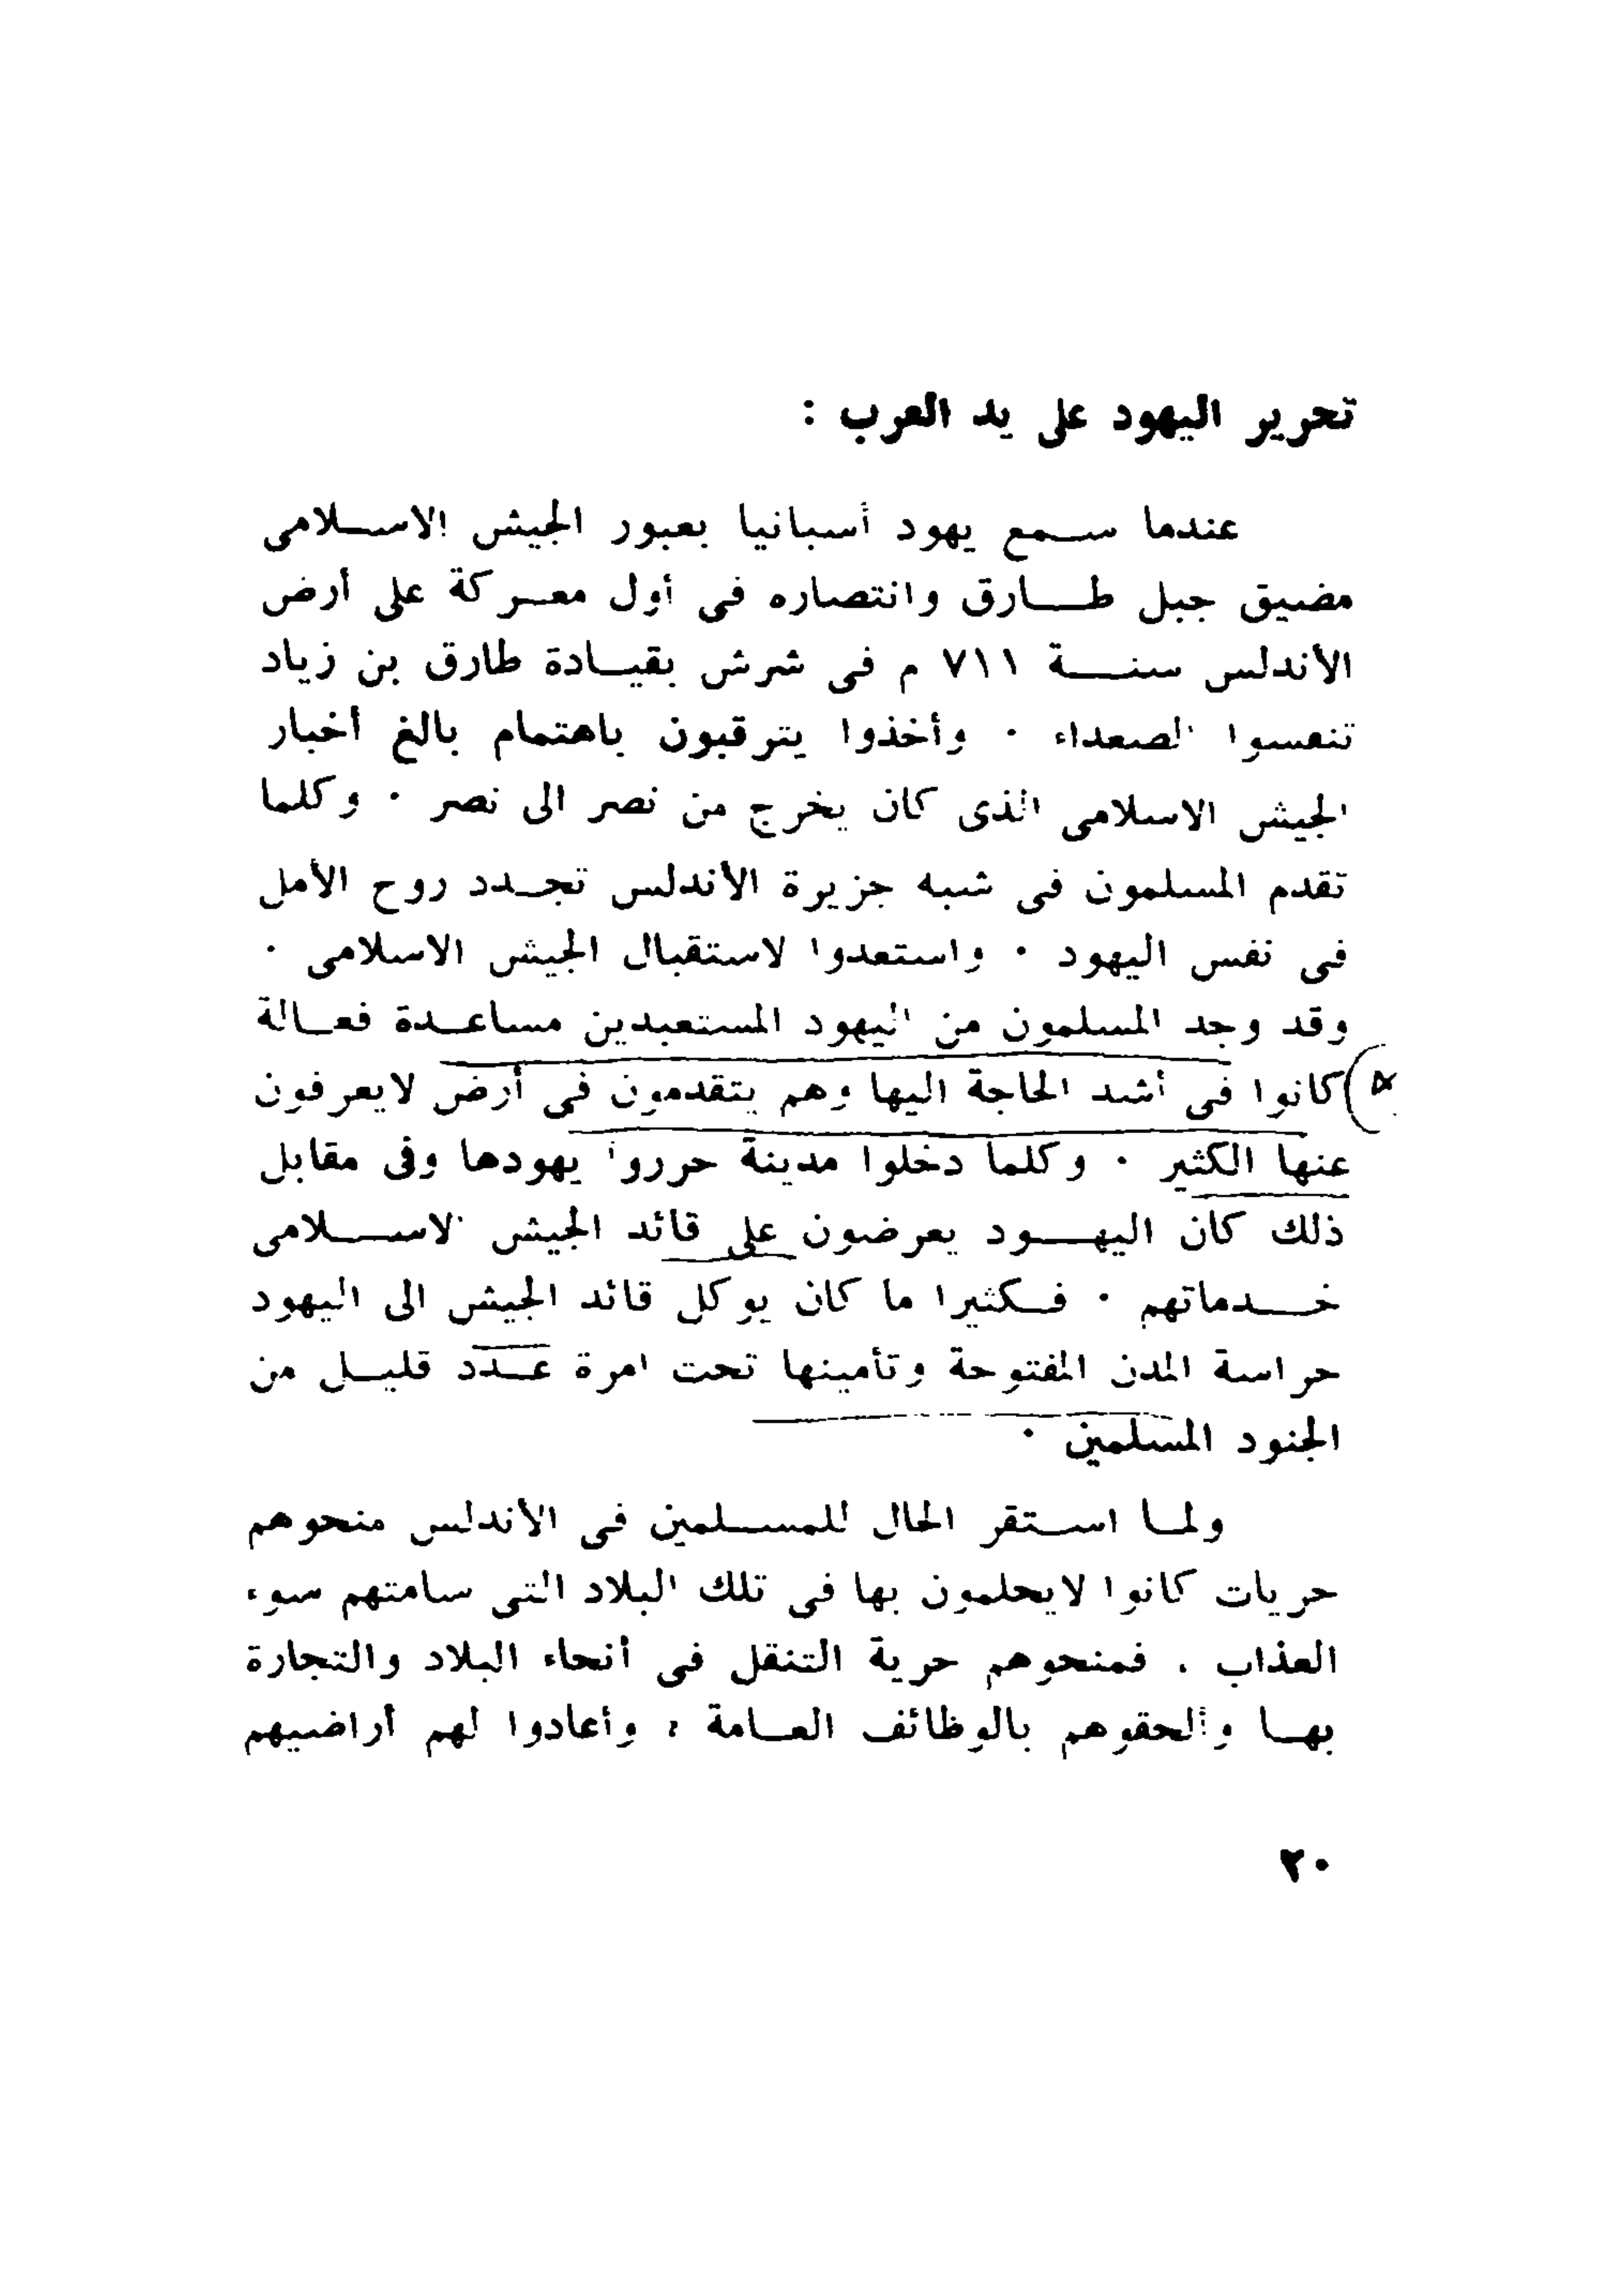 تحرير اليهود على يد العرب :
عندما سمع يهود أسبانيا بعبور الجيش الاسلامى
مضيق جبل طارق وانتصاره فى أول معركة على أرض
الأندلس سنة ٧١١ م فى شرش بقيادة طارق بن زياد
تنفسوا الصعداء ٠ وأخذوا يترقبون باهتمام بالغ أخبار
الجيش الاسلامى الذى كان يخرج من نصر الى نصر ٠ وكلما
تقدم المسلمون فى شبه جزيرة الأندلس تجدد روح الأمل
فى نفس اليهود ٠ واستعدوا لاستقبال الجيش الاسلامى ٠
وقد وجد المسلمون من اليهود المستعبدين مساعدة فعالة
كانوا فى أشد الحاجة اليها وهم يتقدمون فى أرض لايعرفون
عنها الكثير ٠ وكلما دخلوا مدينة حرروا يهودها وفى مقابل
ذلك كان اليهود يعرضون على قائد الجيش الاسلامى
خدماتهم ٠ فكثيرا ما كان يوكل قائد الجيش الى اليهود
حراسة المدن المفتوحة وتأمينها تحت امرة عدد قليل من
الجنود المسلمين ٠
ولما استقر الحال للمسلمين فى الأندلس منحوهم
حريات كانوا لايحلمون بها فى تلك البلاد التى سامتهم سوء
العذاب . فمنحوهم حرية التنقل فى أنحاء البلاد والتجارة
بها وألحقوهم بالوظائف العامة ، وأعادوا لهم أراضيهم
٢٠